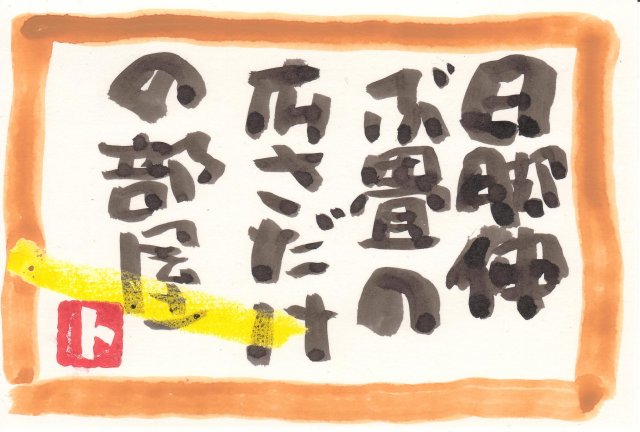 日脚伸
ぶ畳の
広さだけ
の部屋
ト